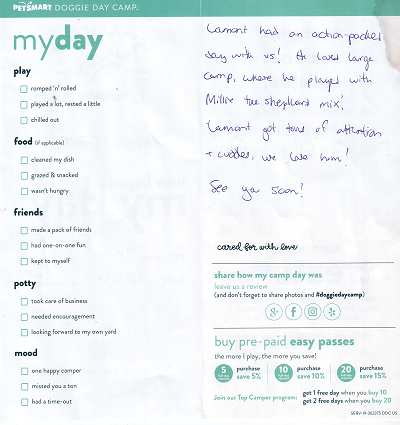 PETSMART DOGGIE DAY CAMP.
myday
play
romped 'n' rolled
played a lot, rested a little
chilled out
food (if applicable)
cleaned my dish
grazed & snacked
wasn't hungry
friends
made a pack of friends
had one-on-one fun
kept to myself
potty
took care of business
needed encouragement
looking forward to my own yard
mood
one happy camper
missed you a ton
had a time-out
Lamont had an action-packed
day with us! He loved large
camp, where he played with
Millie the shepherd mix!
Lamont got tons of attention
+ cuddles, we love him!
See you soon!
cared for with love
share how my camp day was
leave us a review
(and don't forget to share photos and #doggiedaycamp)
buy pre-paid easy passes
the more I play, the more you save!
5 purchase save 5%
10 purchase save 10%
20 purchase save 15%
Join our Top Camper program:
get 1 free day when you buy 10
get 2 free days when you buy 20